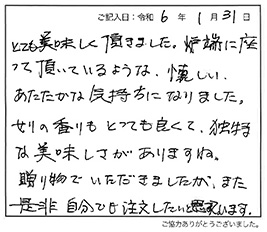 ご記入日：令和 6 年 1 月 31 日
とても美味しく頂きました。炉端に座
って頂いているような、懐しい、
あたたかな気持ちになりました。
せりの香りもとっても良くて、独特
な美味しさがありますね。
贈り物でいただきましたが、また
是非自分でも注文したいと思います。
ご協力ありがとうございました。